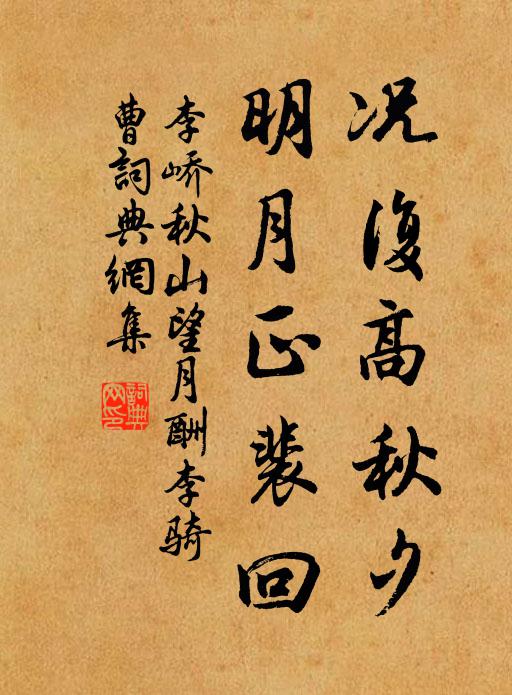 况復高秋夕
明月正裴回
李嶠秋山望月酬李骑
曹詞典網集
詞典
网印